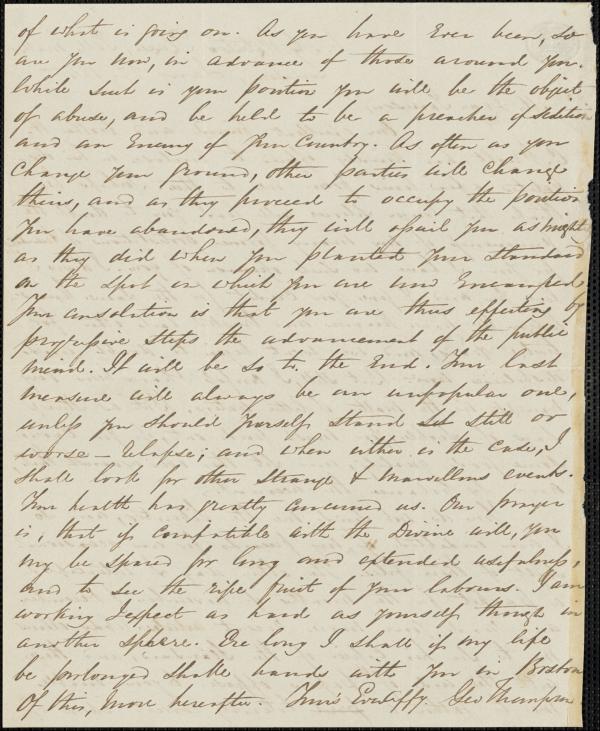 of what is going on. As you have Ever been, so
are you now, in advance of those around you.
While such is your position you will be the object
of abuse, and be held to be a preacher of sedition
and an Enemy of Your Country. As often as you
change your ground, other parties will change
theirs, and as they proceed to occupy the position
you have abandoned, they will assail you as
as they did when you planted your standard
on the spot on which you are now Encamped.
Your consolation is that you are thus effecting by
progressive steps the advancement of the public
mind. It will be so to the End. Your last
measure will always be an unpopular one,
unless you should yourself stand still or
worse – relapse; and when either is the case, I
shall look for other strange & marvellous events.
Your health has greatly concerned us. Our prayer
is, that if compatible with the Divine will, you
may be spared for long and extended usefulness,
and to see the ripe fruit of your labours. I am
working I expect as hard as yourself though in
another sphere. Ere long I shall if my life
be prolonged shake hands with you in Boston
Of this, more hereafter. Your's Geo Thompson